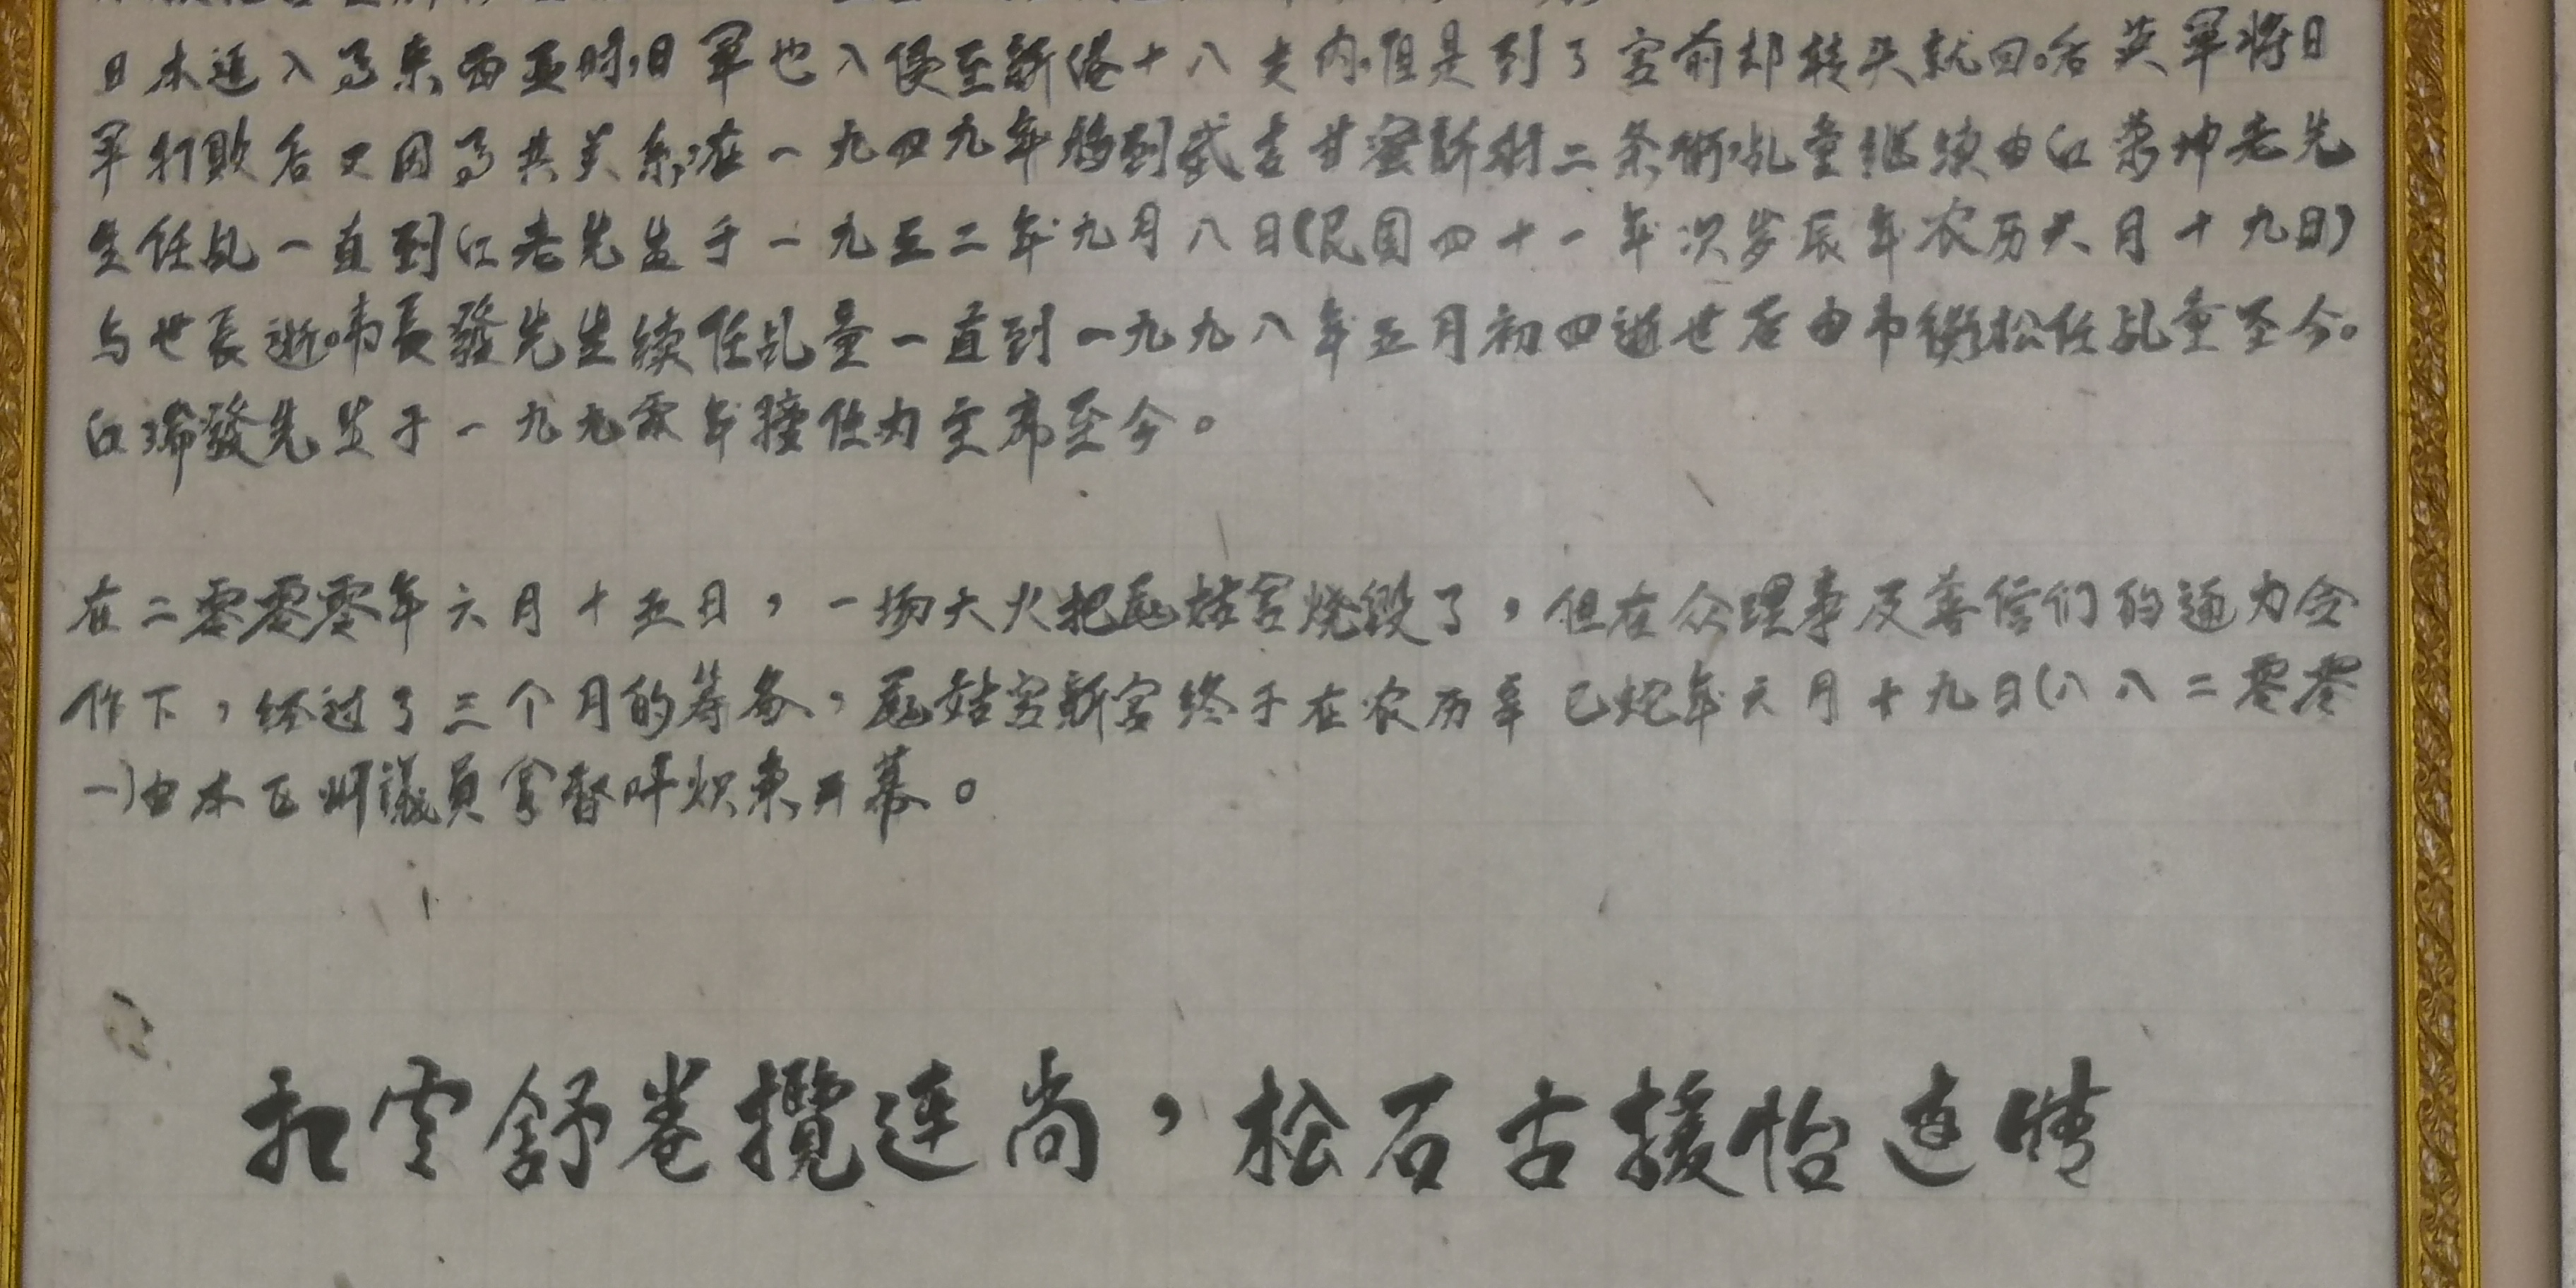 日本进入马来西亚时,日军也入侵至新港十八支内.但是到了宫前却转头就回。后英军将日
军打败后又因马共关系,在一九四九年移到武吉甘蜜新村二条街,乩童继续由江荣坤老先
生任乩一直到江老先生于一九五二年九月八日(民国四十一年次岁辰年农历六月十九日)
与世長逝。韦長發先生续任乩童一直到一九九八年五月初四逝世后由韦衡松任乩童至今。
江瑞發先生于一九九零年接任为主席至今。
在二零零零年六月十五日，一场大火把尪姑宫烧毁了，但在众理事及善信们的通力合
作下，经过了三个月的筹备，尪姑宫新宫终于在农历辛巳蛇年六月十九日(八八二零零
一)由本区州議員拿督叶炽東开幕。
舒卷攬连尚，松石古援怡